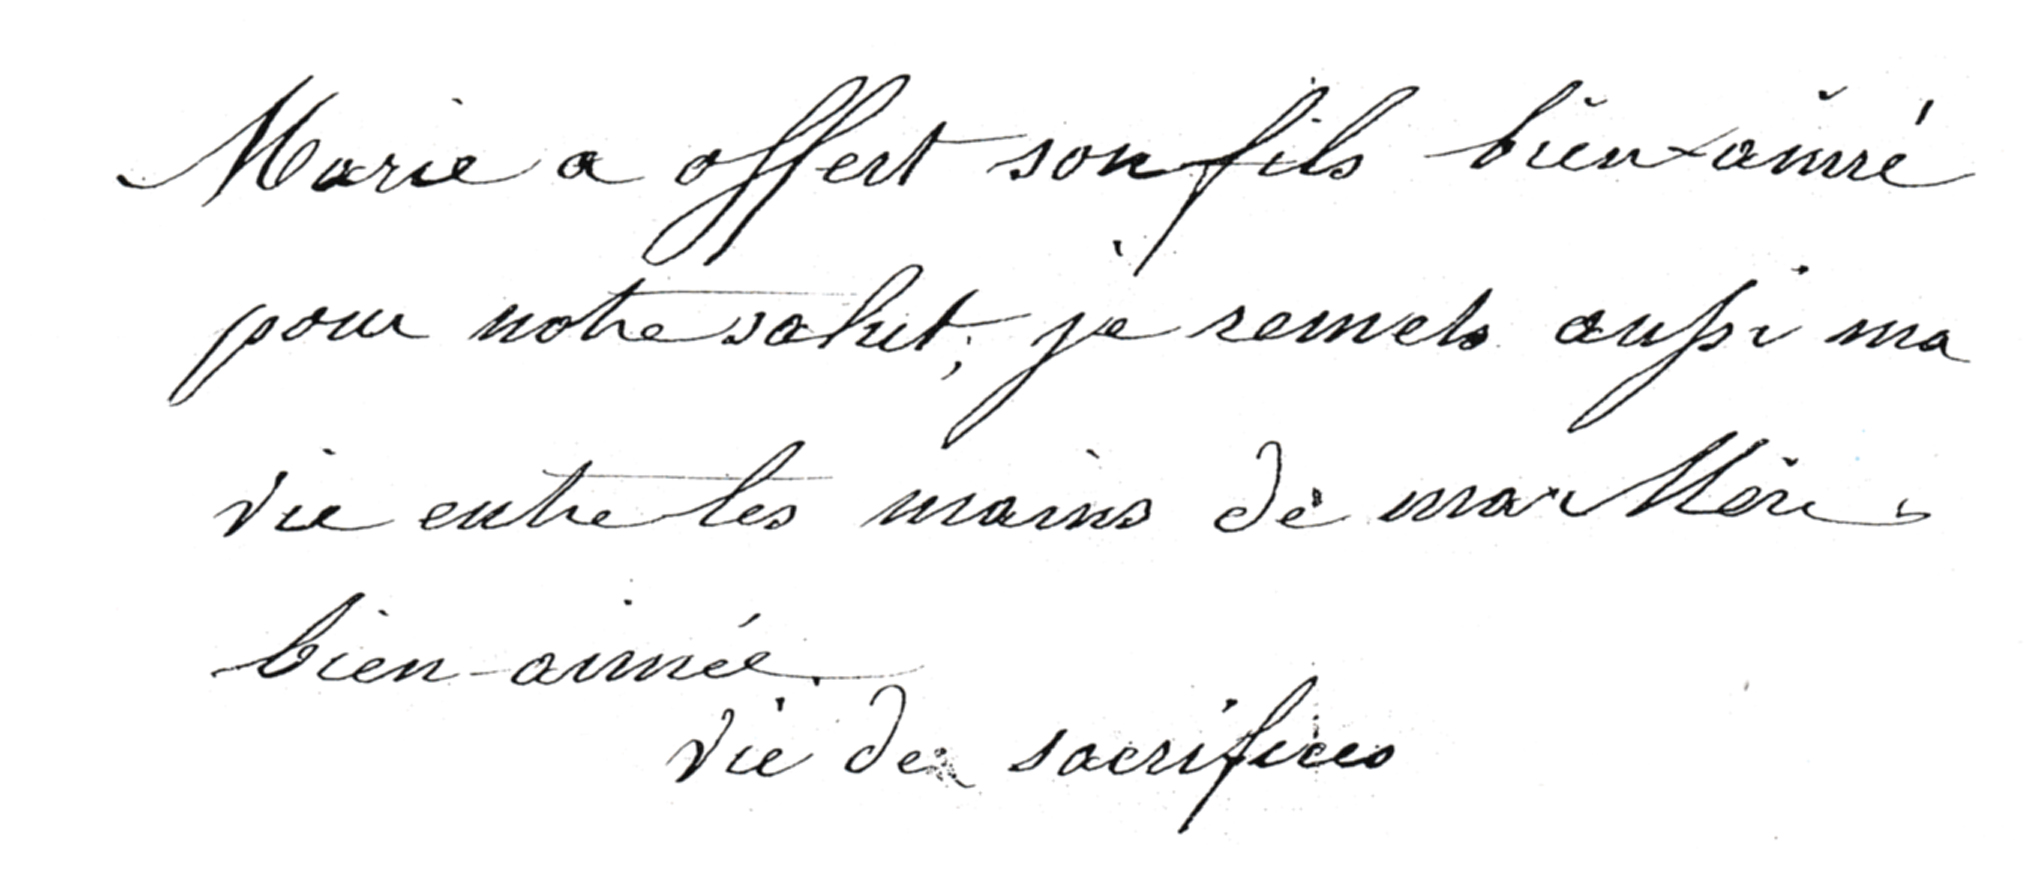 Marie a offert son fils bien-aimé
pour notre salut, je remets aussi ma
vie entre les mains de ma Mère
bien-aimée.
vie de sacrifices